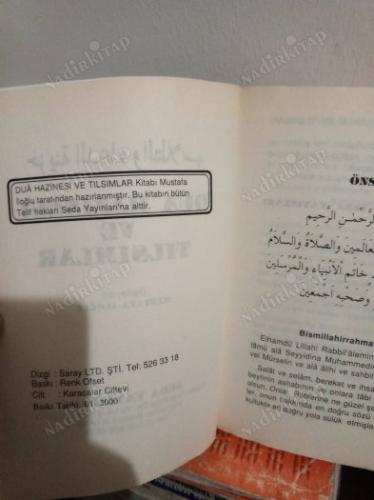 DUÂ HAZİNESİ VE TILSIMLAR Kitabı Mustafa
İloğlu tarafından hazırlanmıştır. Bu kitabın bütün
Telif hakları Seda Yayınları'na aittir.
Dizgi : Saray LTD. ŞTİ. Tel: 526 33 18
Baskı : Renk Ofset
Cilt : Karacalar Ciltevi
Baskı Tarihi
2000
ÖNS
الرَّحْمٰنِ الرَّحِيمِ
الْعَالَمِينَ وَالصَّلَاةُ وَالسَّلَامُ
خَاتَمِ الْأَنْبِيَاءِ وَالْمُرْسَلِينَ
وَصَحْبِهِ أَجْمَعِينَ
Bismillahirrahma
Elhamdü Lillahi Rabbil'âlemin
lâmü alâ Seyyidina Muhammedi
vel Mürselin ve alâ âlihi ve sahbi
Salât ve selâm, bereket ve ihsa
beytinin ashabının ve onlara tâbi
olsun. Onlar Rablerine ne güzel şe
on doğru sözü
kullukta en doğru yola sülûk etmişle
NADİRKİTAP